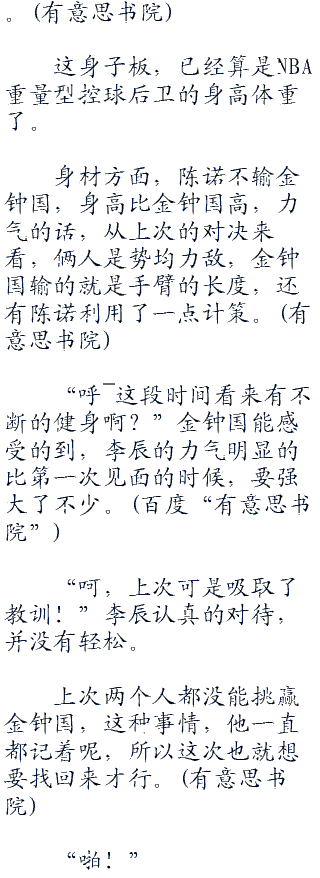 。(有意思书院)
这身子板，已经算是NBA
重量型控球后卫的身高体重
了。
身材方面，陈诺不输金
钟国，身高比金钟国高，力
气的话，从上次的对决来
看，俩人是势均力敌，金钟
国输的就是手臂的长度，还
有陈诺利用了一点计策。(有
意思书院)
“呼~这段时间看来有不
断的健身啊？”金钟国能感
受的到，李辰的力气明显的
比第一次见面的时候，要强
大了不少。(百度“有意思书
院”)
“呵，上次可是吸取了
教训！”李辰认真的对待，
并没有轻松。
上次两个人都没能挑赢
金钟国，这种事情，他一直
都记着呢，所以这次也就想
要找回来才行。(有意思书
院)
“啪！”